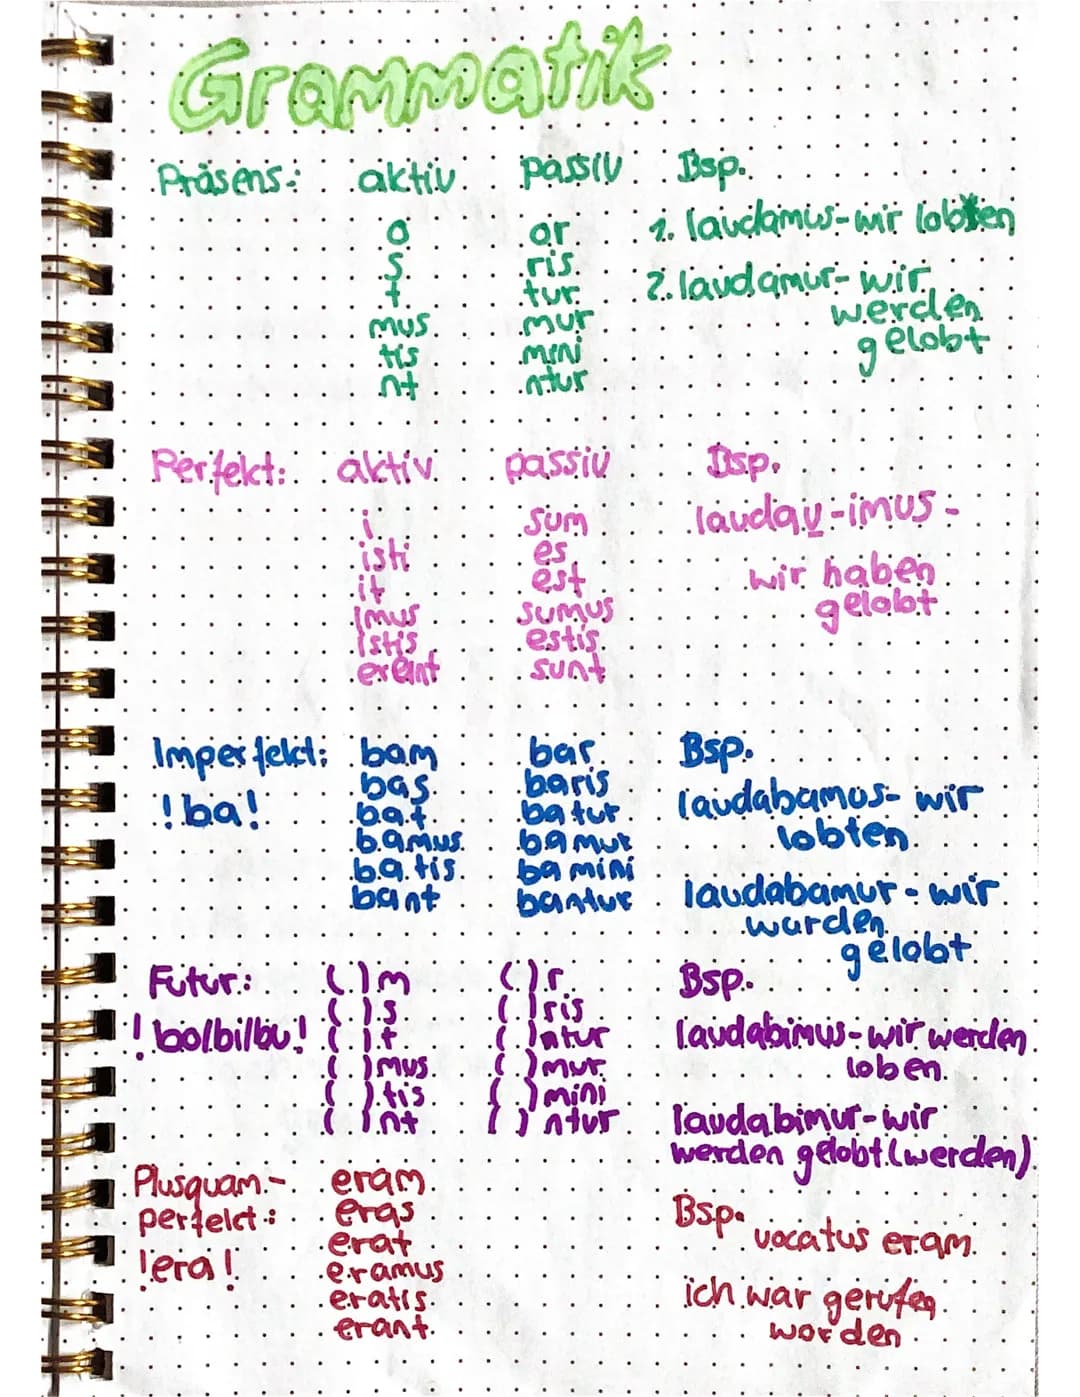 Grammatik
Präsens: aktiv passiv Bsp.
o or 1. laudamus-wir loben
s ris
t tur 2. laudamur-wir
mus mur werden
tis mini gelobt
nt ntur
Perfekt: aktiv passiv Bsp.
i sum laudav-imus-
isti es
it est wir haben
imus sumus gelobt
istis estis
erunt sunt
Imperfekt: bam bar Bsp.
bas baris
!ba! bat batur laudabamus-wir
bamus bamur lobten
batis bamini
bant bantur laudabamur-wir
wurden
gelobt
Futur: ( )m ( )r Bsp.
( )s ( )ris
!bo/bi/bu! ( )t ( )ntur laudabimus-wir werden
( )mus ( )mur loben
( )tis ( )mini
( )nt ( )ntur laudabimur-wir
werden gelobt (werden)
Plusquam- eram
perfekt: eras Bsp. vocatus eram
!era! erat
eramus ich war gerufen
eratis worden
erant